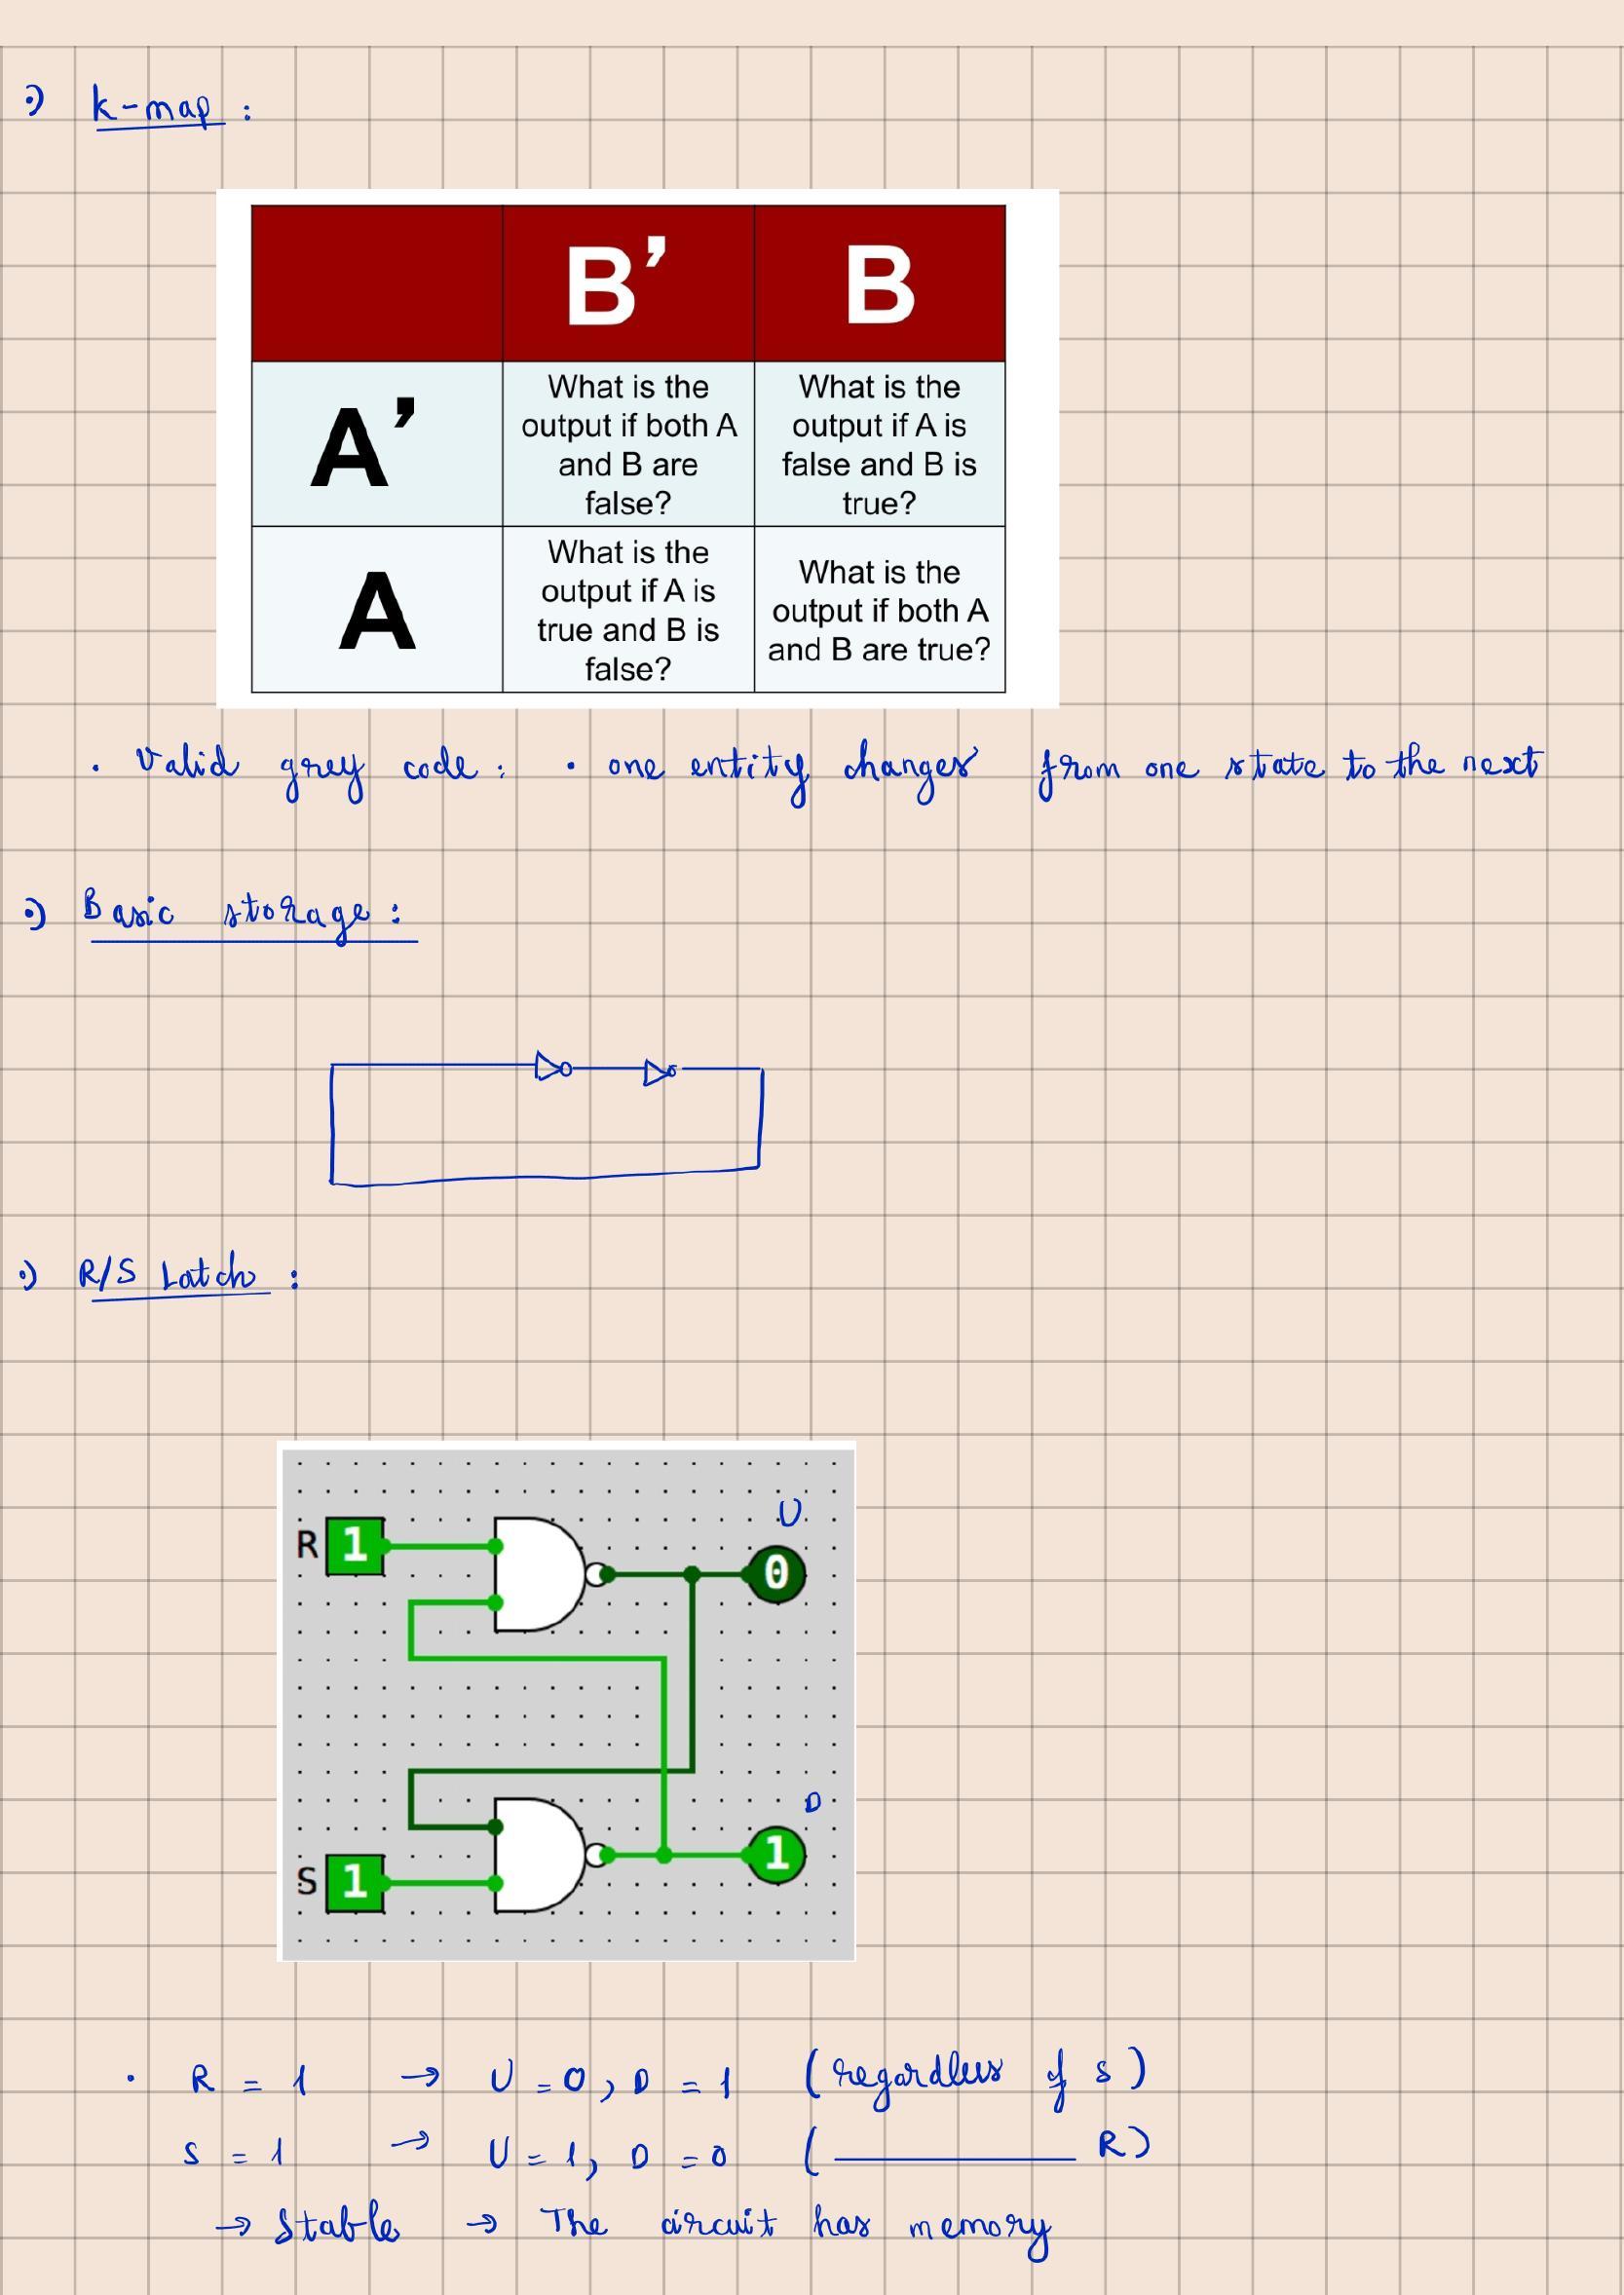 •) k-map :
B’ B
A’ What is the output if both A and B are false? What is the output if A is false and B is true?
A What is the output if A is true and B is false? What is the output if both A and B are true?
• Valid grey code : • one entity changes from one state to the next
•) Basic storage :
•) R/S Latch :
U
R 1 0
D
S 1 1
• R = 1 → U = 0, D = 1 (regardless of s)
S = 1 → U = 1, D = 0 ( ________ R)
→ Stable → The circuit has memory